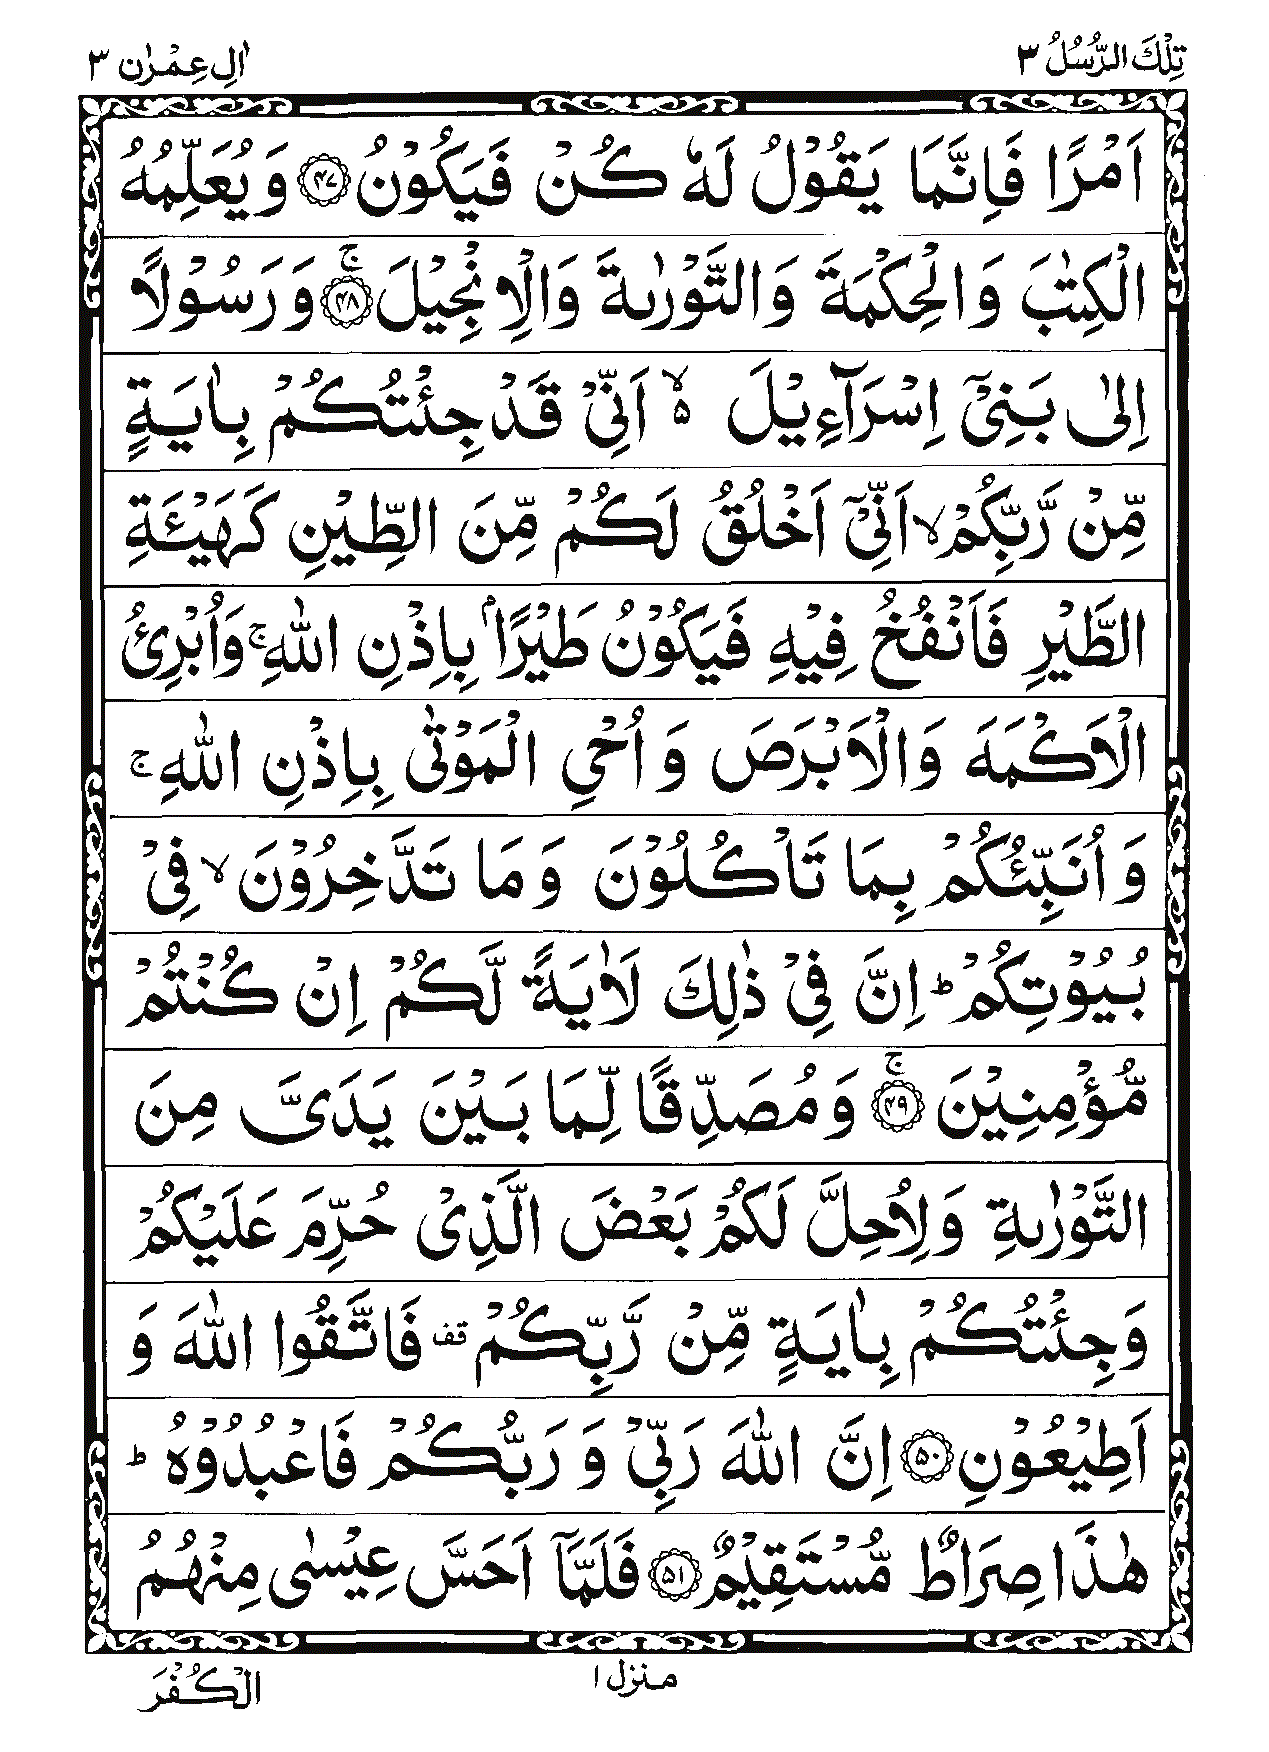 تِلْكَ الرُّسُلُ ٣
اٰلِ عِمْرٰن ٣
اَمْرًا فَاِنَّمَا يَقُوْلُ لَهٗ كُنْ فَيَكُوْنُ ﴿۴۷﴾ وَيُعَلِّمُهُ
الْكِتٰبَ وَالْحِكْمَةَ وَالتَّوْرٰىةَ وَالْاِنْجِيْلَ ۚ﴿۴۸﴾ وَرَسُوْلًا
اِلٰى بَنِىْٓ اِسْرَآءِيْلَ ۙ۵ اَنِّىْ قَدْ جِئْتُكُمْ بِاٰيَةٍ
مِّنْ رَّبِّكُمْ ۙ اَنِّىْٓ اَخْلُقُ لَكُمْ مِّنَ الطِّيْنِ كَهَيْـَٔةِ
الطَّيْرِ فَاَنْفُخُ فِيْهِ فَيَكُوْنُ طَيْرًاۢ بِاِذْنِ اللّٰهِ ۚ وَاُبْرِئُ
الْاَكْمَهَ وَالْاَبْرَصَ وَاُحْىِ الْمَوْتٰى بِاِذْنِ اللّٰهِ ۚ
وَاُنَبِّئُكُمْ بِمَا تَاْكُلُوْنَ وَمَا تَدَّخِرُوْنَ ۙ فِىْ
بُيُوْتِكُمْ ؕ اِنَّ فِىْ ذٰلِكَ لَاٰيَةً لَّكُمْ اِنْ كُنْتُمْ
مُّؤْمِنِيْنَ ۚ﴿۴۹﴾ وَمُصَدِّقًا لِّمَا بَيْنَ يَدَىَّ مِنَ
التَّوْرٰىةِ وَلِاُحِلَّ لَكُمْ بَعْضَ الَّذِىْ حُرِّمَ عَلَيْكُمْ
وَجِئْتُكُمْ بِاٰيَةٍ مِّنْ رَّبِّكُمْ قف فَاتَّقُوا اللّٰهَ وَ
اَطِيْعُوْنِ ﴿۵۰﴾ اِنَّ اللّٰهَ رَبِّىْ وَرَبُّكُمْ فَاعْبُدُوْهُ ؕ
هٰذَا صِرَاطٌ مُّسْتَقِيْمٌ ﴿۵۱﴾ فَلَمَّآ اَحَسَّ عِيْسٰى مِنْهُمُ
منزل ۱
الْكُفْرَ